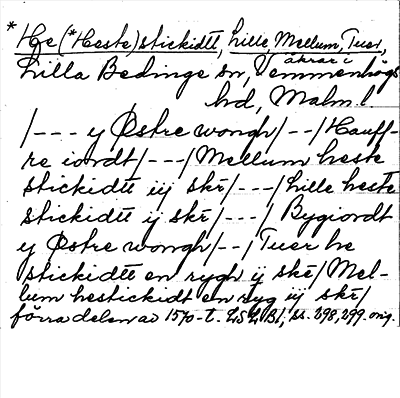 *He (*Heste)stickidtt, Lille, Mellum, Tuer,
åkrar i
Lilla Bedinge sn, Vemmenhögs
hd, Malm. l.
/--- y Østre wongh/--/Hauff-
re iordt/---/Mellum heste
stickidtt iij skr/---/Lille heste
stickidtt ij skr/---/Bygiordt
y Østre wongh/--/Tuer he
stickidtt en rygh ij skr/Mel-
lum hestickidt en ryg iij skr/
förra delen av 1570-t. LSLB1, ss. 298, 299. orig.